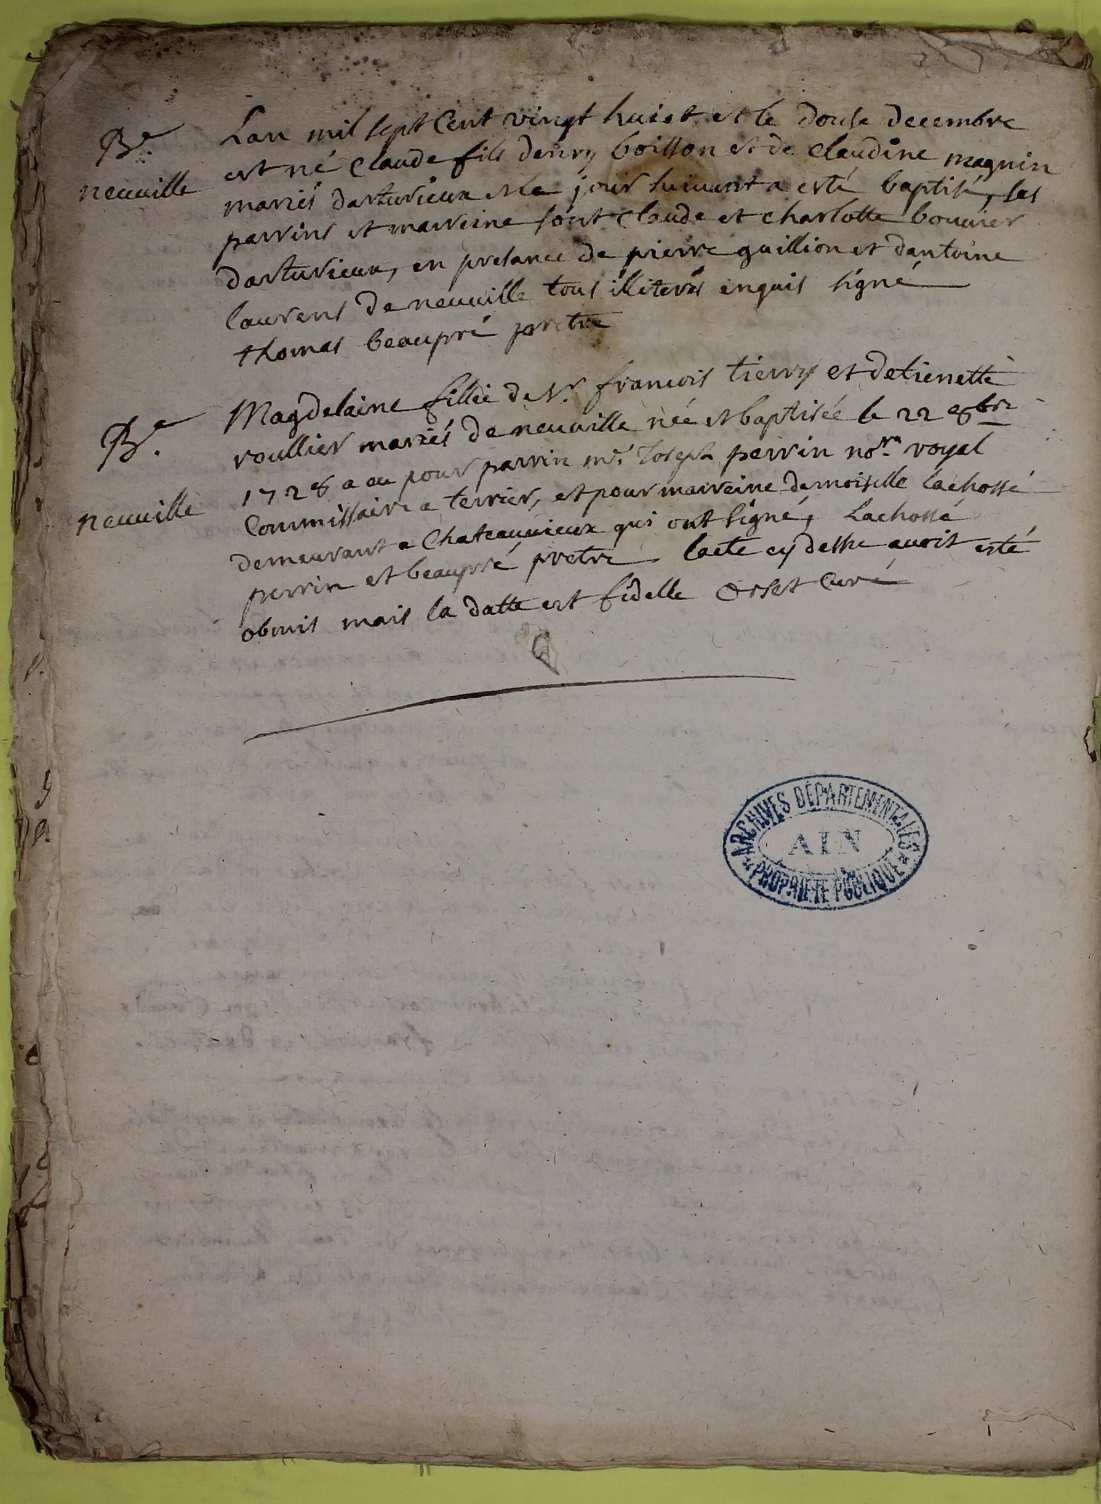 Be
neuville
Lan mil sept Cent vingt huict et le douse decembre
est né Claude fils denry boisson et de claudine magnin
mariés darturieux et le jour suivant a esté baptisé, ses
parrins et marreine sont Claude et charlotte bouvier
darturieux, en presance de pierre guillion et dantoine
laurens de neuville tous illiterés enquis signé
thomas beaupré pretre
Be.
neuville
Magdelaine fillie de Sr. francois tierry et detienette
roullier mariés de neuville née et baptisée le 22 8bre
1728 a eu pour parrin mre. Joseph perrin nore. royal
Commissaire a terrier, et pour marreine demoiselle lachossé
demeurant a Chateauvieux qui ont signé, Lachossé
perrin et beaupré pretre lacte cy dessu avoit esté
obmis mais la datte est fidelle Orset Curé
ARCHIVES DÉPARTEMENTALES
AIN
PROPRIÉTÉ PUBLIQUE